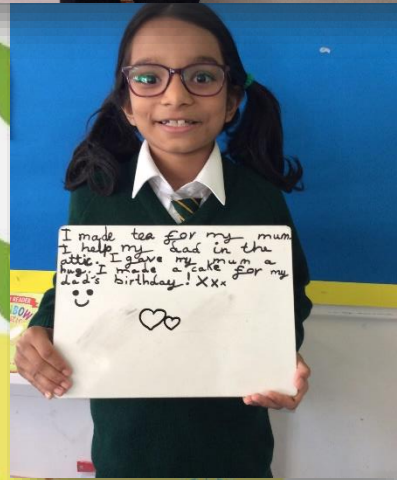 I made tea for my mum
I help my dad in the
attic. I gave my mum a
hug. I made a cake for my
dad's birthday! xxx